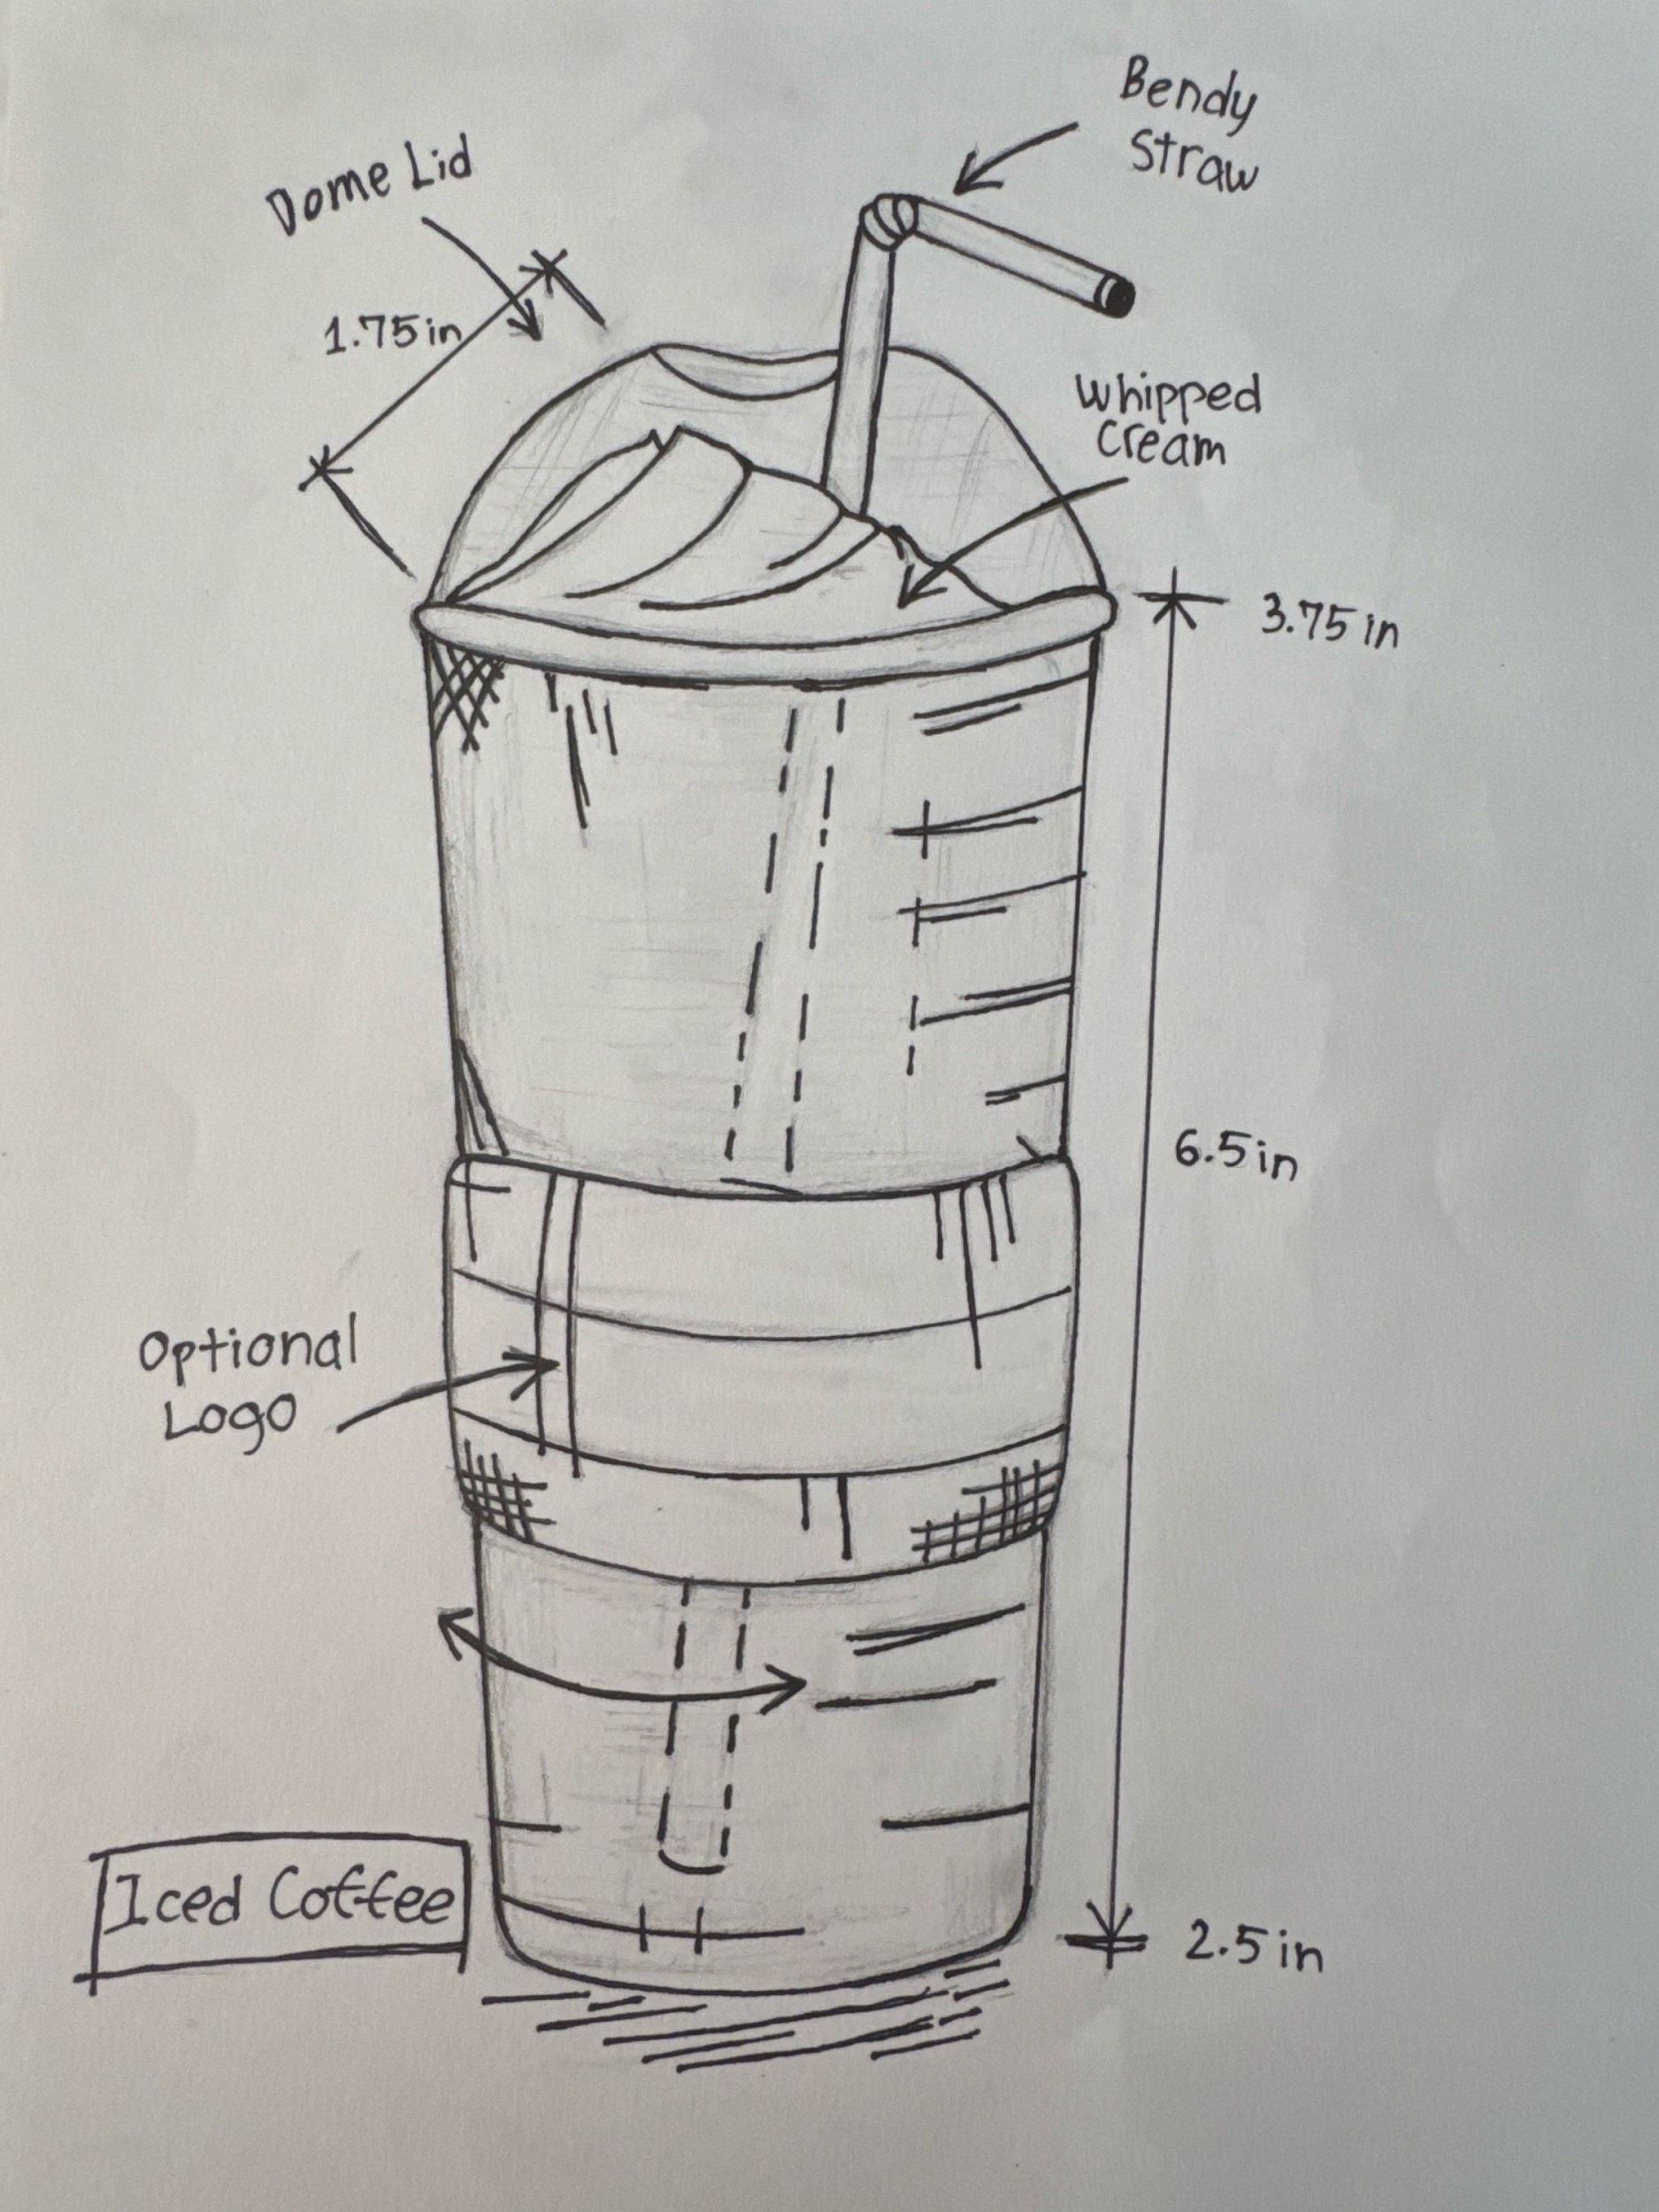 Bendy
Straw
Dome Lid
1.75in
Whipped
Cream
3.75 in
6.5in
Optional
Logo
Iced Coffee
2.5 in